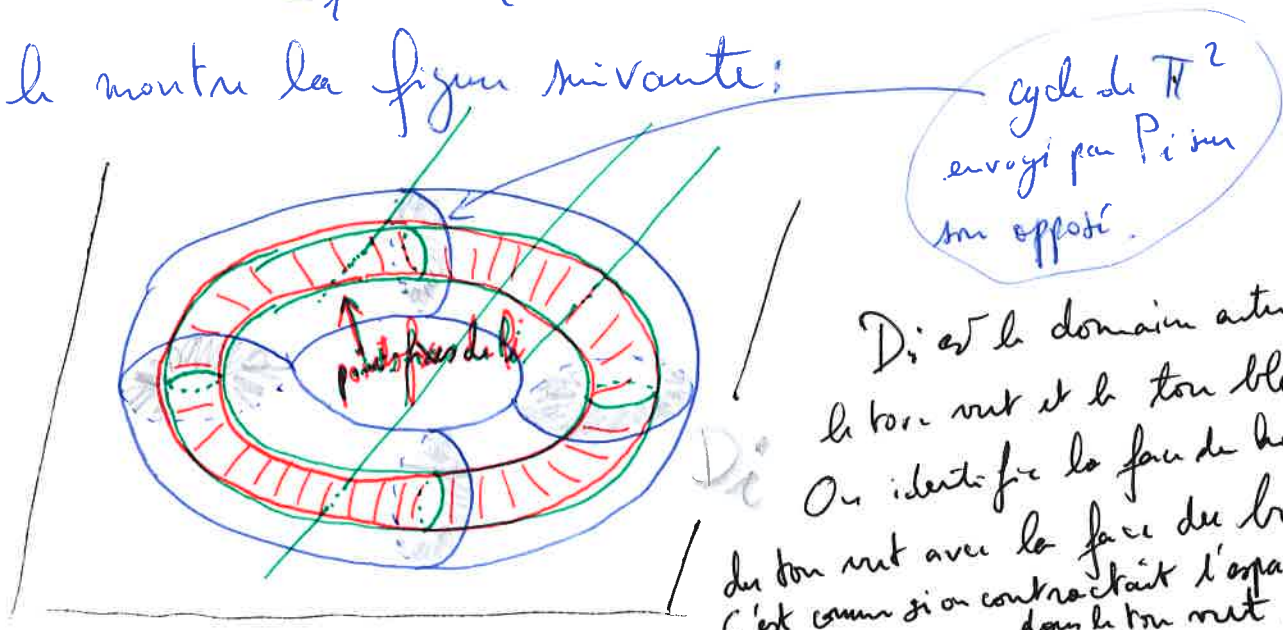 le montre la figure suivante:
cycle de 𝕋²
envoyé par Pi sur
son opposé.
points fixes de Pi
Di
Di est le domaine entre
le tore vert et le tore bleu
On identifie la face du
du tore vert avec la face du
C'est comme si on contractait l'espace
dans le tore vert